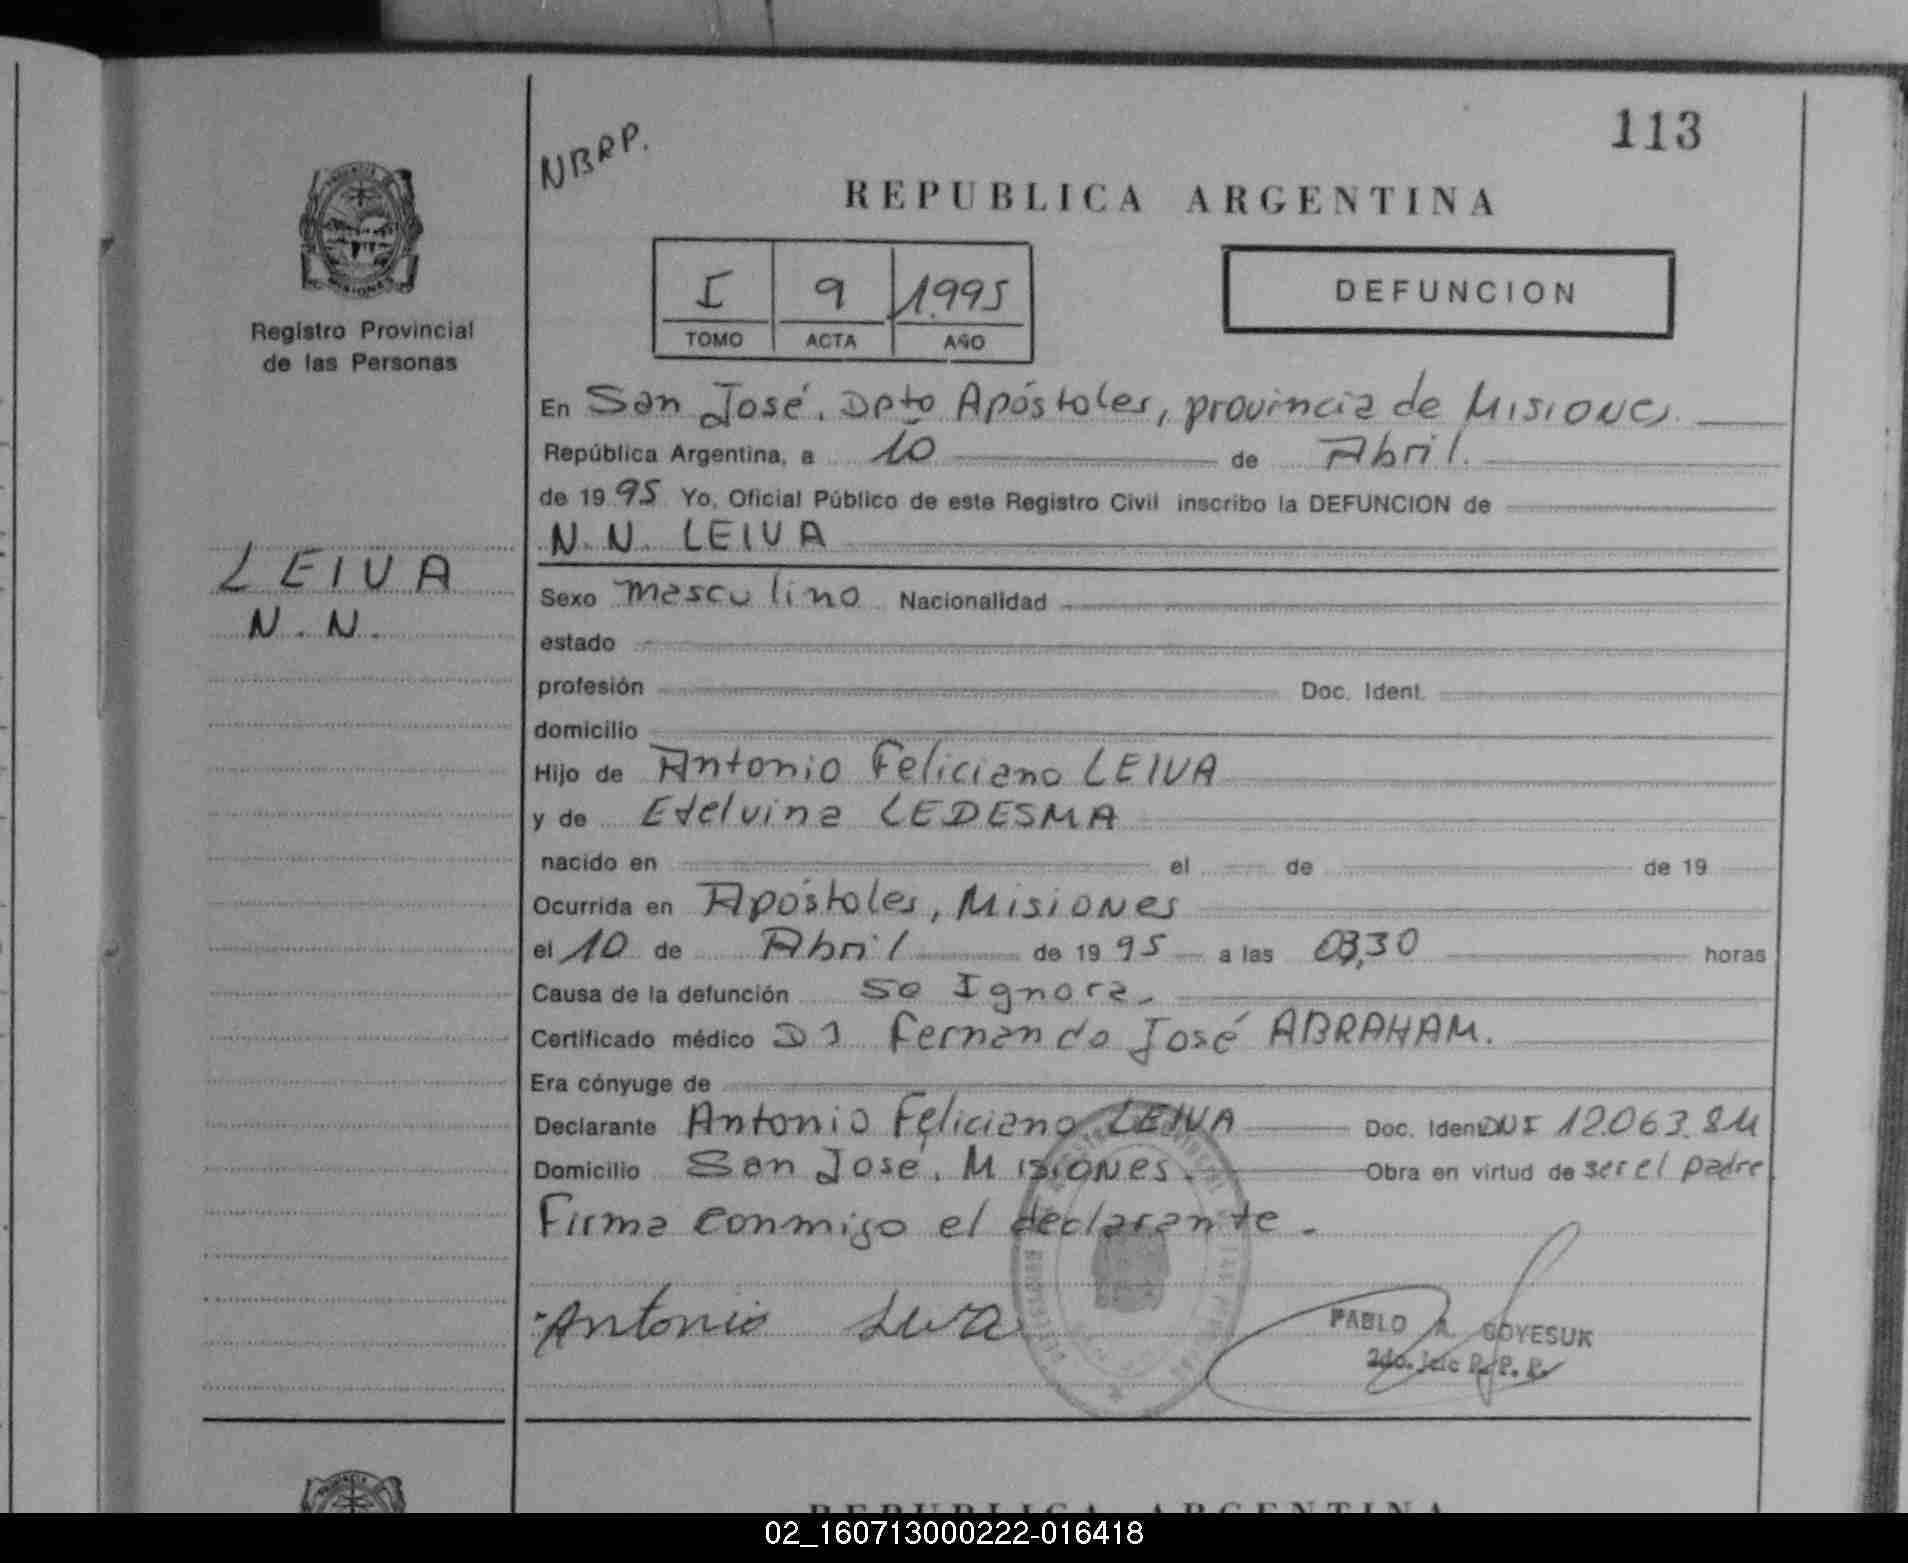 113
NBRP.
REPUBLICA ARGENTINA
PROVINCIA DE
MISIONES
Registro Provincial
de las Personas
I 9 1.995
TOMO ACTA AÑO
DEFUNCION
En San José. Dpto Apóstoles, provincia de Misiones.
República Argentina, a 10 de Abril.
de 19 95 Yo, Oficial Público de este Registro Civil inscribo la DEFUNCION de
N.N. LEIVA
LEIVA
N.N.
Sexo masculino Nacionalidad
estado
profesión Doc. Ident.
domicilio
Hijo de Antonio Feliciano LEIVA
y de Etelvina LEDESMA
nacido en el de de 19
Ocurrida en Apóstoles, Misiones
el 10 de Abril de 19 95 a las 03,30 horas
Causa de la defunción se Ignora.
Certificado médico Fernando José ABRAHAM.
Era cónyuge de
Declarante Antonio Feliciano LEIVA Doc. Ident DNI 12.063.
Domicilio San José. Misiones. Obra en virtud de ser el padre
Firma conmigo el declarante.
Antonio Leiva
PABLO A. SOYESUK
2do. R. P. P.
REPUBLICA ARGENTINA
02_160713000222-016418